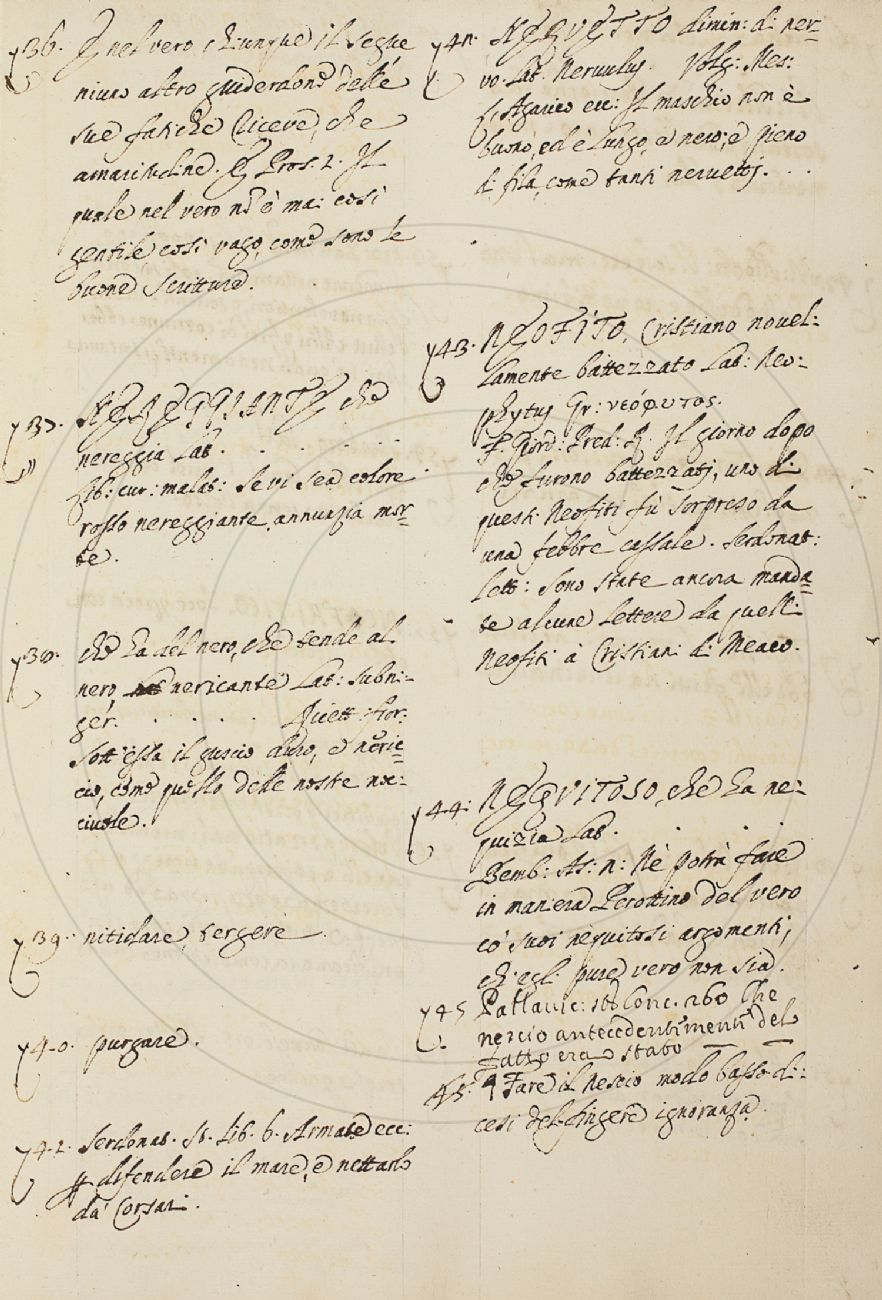 736. E nel vero chiunque il segue
niuno altro guiderdone delle
sue fatiche riceve, che
amaritudine. E Pros. 2. Il
quale nel vero nõ è mai così
gentile, così vago, come sono le
buone scritture.
737. NEREGGIANTE che
nereggia Lat. . . . . . .
Lib: cur: malat: Se vi sea colore
rosso nereggiante, annunzia mor=
te.
738. che ha del nero, che tende al
nero, nericante Lat: subni=
ger. . . . . . Ricett: fior:
Sott'essa il guscio duro, e neric=
cio, come quello delle nostre noc=
ciuole.
739. nitidare, tergere
740. purgare.
741. Serdonat. St. Lib. 6. Armate ecc:
p difendere il mare, e nettarlo
da' Corsari.
742. NERVETTO dimin: di ner=
vo. Lat. Nervulus. Volg: Mes:
Agarico ecc: Il maschio non è
buono, ed è lungo, e nero, e pieno
di fila, come tanti nervetti. . .
743. NEOFITO, Cristiano novel=
lamente battezzato Lat: Neo=
phytus Gr: νεόφυτος.
F. Giord: Pred: R. Il giorno dopo
che furono battezzati, uno di
questi Neofiti fù sorpreso da
una febbre cassale. Serdonat:
Lett: Sono state ancora manda=
te alcune lettere da quelli
Neofiti à Cristiani di Meaco.
744. NEQVITOSO, che ha ne=
quizia Lat. . . .
Bemb: As: n: Nè potrà fare
in maniera Perottino del vero
co' suoi nequitosi argomenti,
ch'egli pure vero non sia.
745 Pallavic: st. Conc. 260 Che
nescio antecedentimenti del
fatto era stato
45. Fare il Nescio modo basso di=
cesi del fingere ignoranza.